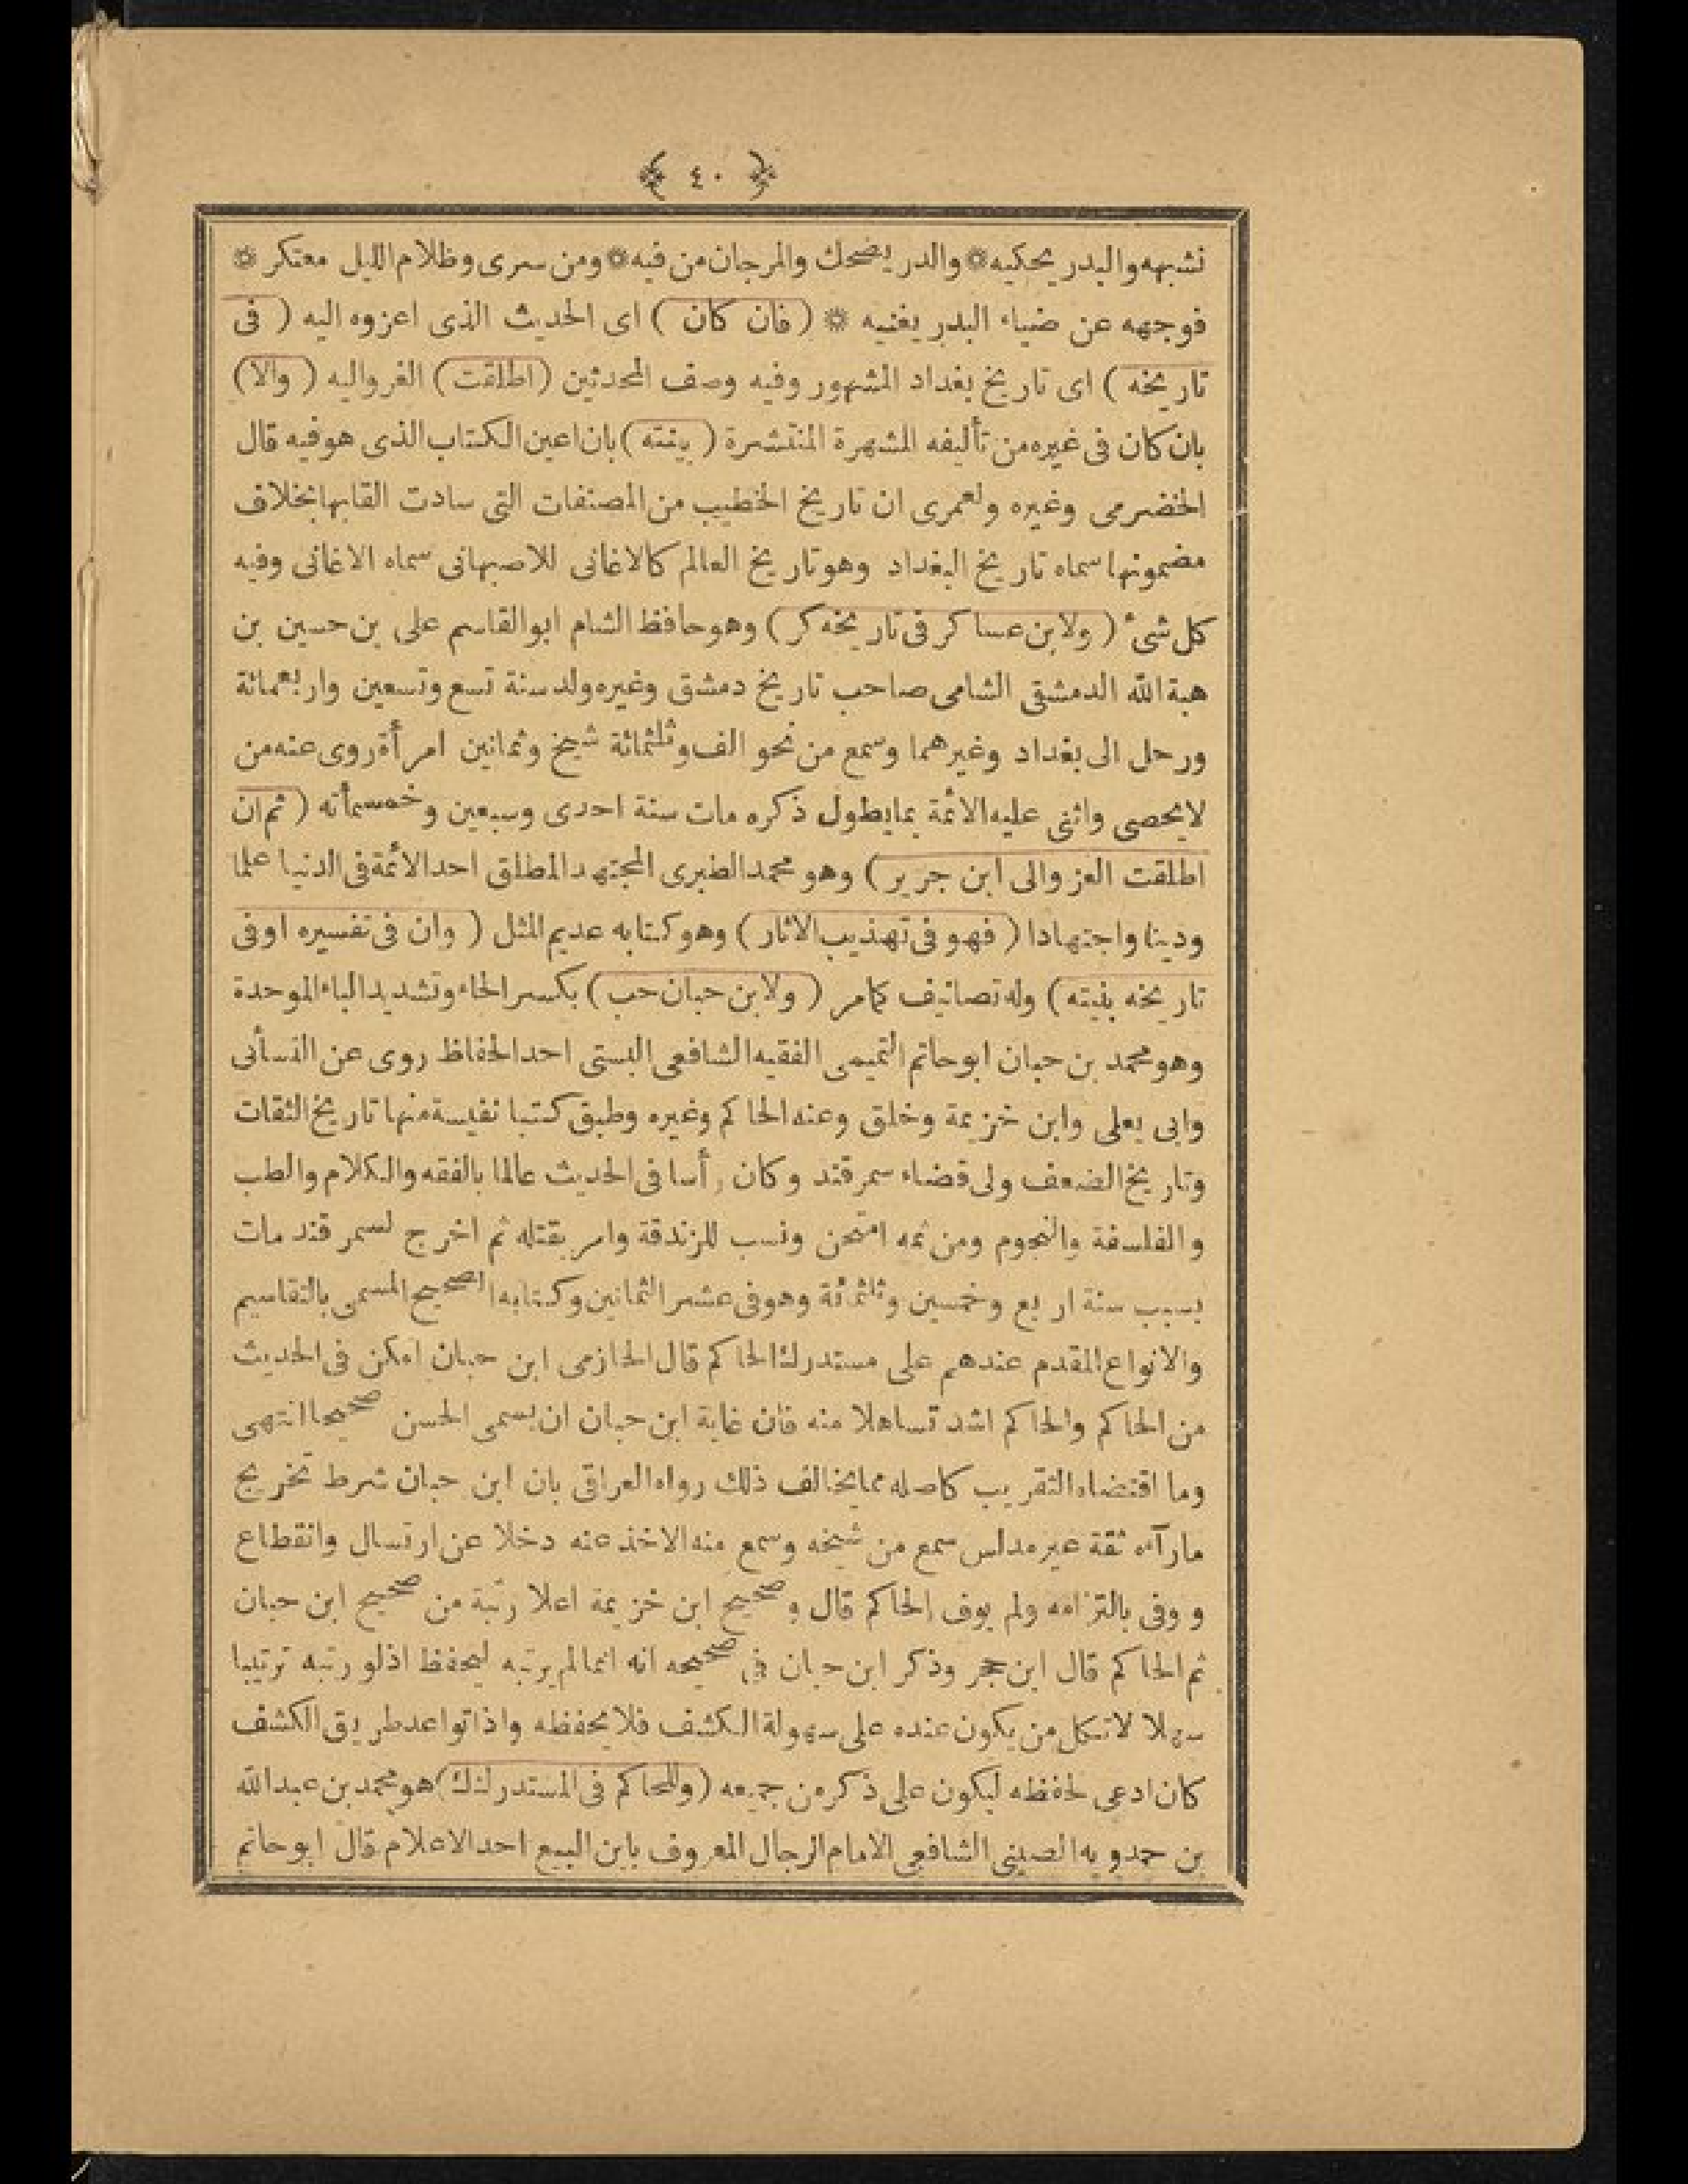 ﴿ ٤٠ ﴾
نشبهه والبدر يحكيه * والدر يضحك والمرجان من فيه * ومن سرى وظلام الليل معتكر *
فوجهه عن ضياء البدر يغنيه * (فان كان) اى الحديث الذى اعزوه اليه (فى
تاريخه) اى تاريخ بغداد المشهور وفيه وصف المحدثين (اطلقت) الغر واليه (والا)
بان كان فى غيره من تأليفه المشهرة المنتشرة (بينته) بان اعين الكتاب الذى هو فيه قال
الخضرمى وغيره ولعمرى ان تاريخ الخطيب من المصنفات التى سادت القابها بخلاف
مضمونها سماه تاريخ البغداد وهو تاريخ العالم كالاغانى للاصبهانى سماه الاغانى وفيه
كل شئ (ولابن عساكر فى تاريخه كر) وهو حافظ الشام ابو القاسم على بن حسين بن
هبة الله الدمشقى الشامى صاحب تاريخ دمشق وغيره ولد سنة تسع وتسعين واربعمائة
ورحل الى بغداد وغيرهما وسمع من نحو الف وثلثمائة شيخ وثمانين امرأة روى عنه من
لا يحصى واثنى عليه الائمة بما يطول ذكره مات سنة احدى وسبعين وخمسمأته (ثم ان
اطلقت العز والى ابن جرير) وهو محمد الطبرى المجتهد المطلق احد الائمة فى الدنيا علما
ودينا واجتهادا (فهو فى تهذيب الاثار) وهو كتابه عديم المثل (وان فى تفسيره او فى
تاريخه بنيته) وله تصانيف كما مر (ولابن حبان حب) بكسر الحاء وتشديد الباء الموحدة
وهو محمد بن حبان ابو حاتم التميمى الفقيه الشافعى البستى احد الحفاظ روى عن النسأنى
وابى يعلى وابن خزيمة وخلق وعنه الحاكم وغيره وطبق كتبا نفيسة منها تاريخ الثقات
وتاريخ الضعف ولى قضاء سمرقند وكان رأسا فى الحديث عالما بالفقه والكلام والطب
والفلسفة والنجوم ومن ثمه امتحن ونسب للزندقة وامر بقتله ثم اخرج لسمر قند مات
بسبب سنة اربع وخمسين وثلثمائة وهو فى عشر الثمانين وكتابه الصحيح المسمى بالتقاسيم
والانواع المقدم عندهم على مستدرك الحاكم قال الحازمى ابن حبان امكن فى الحديث
من الحاكم والحاكم اشد تساهلا منه فان غاية ابن حبان ان يسمى الحسن صحيحا انتهى
وما اقتضاه التقريب كاصله مما يخالف ذلك رواه العراقى بان ابن حبان شرط تخريج
مارآه ثقة غير مدلس سمع من شيخه وسمع منه الاخذ عنه دخلا عن ارتسال وانقطاع
و وفى بالتزامه ولم يوف الحاكم قال وصحيح ابن خزيمة اعلا رتبة من صحيح ابن حبان
ثم الحاكم قال ابن حجر وذكر ابن حبان فى صحيحه انه انما لم يرتبه ليحفظ اذلو رتبه ترتيبا
سهلا لاتكل من يكون عنده على سهولة الكشف فلا يحفظه واذا تواعد طريق الكشف
كان ادعى لحفظه ليكون على ذكر من جميعه (وللحاكم فى المستدرك ك) هو محمد بن عبد الله
بن حمدويه الصينى الشافعى الامام الرجال المعروف بابن البيع احد الاعلام قال ابو حاتم